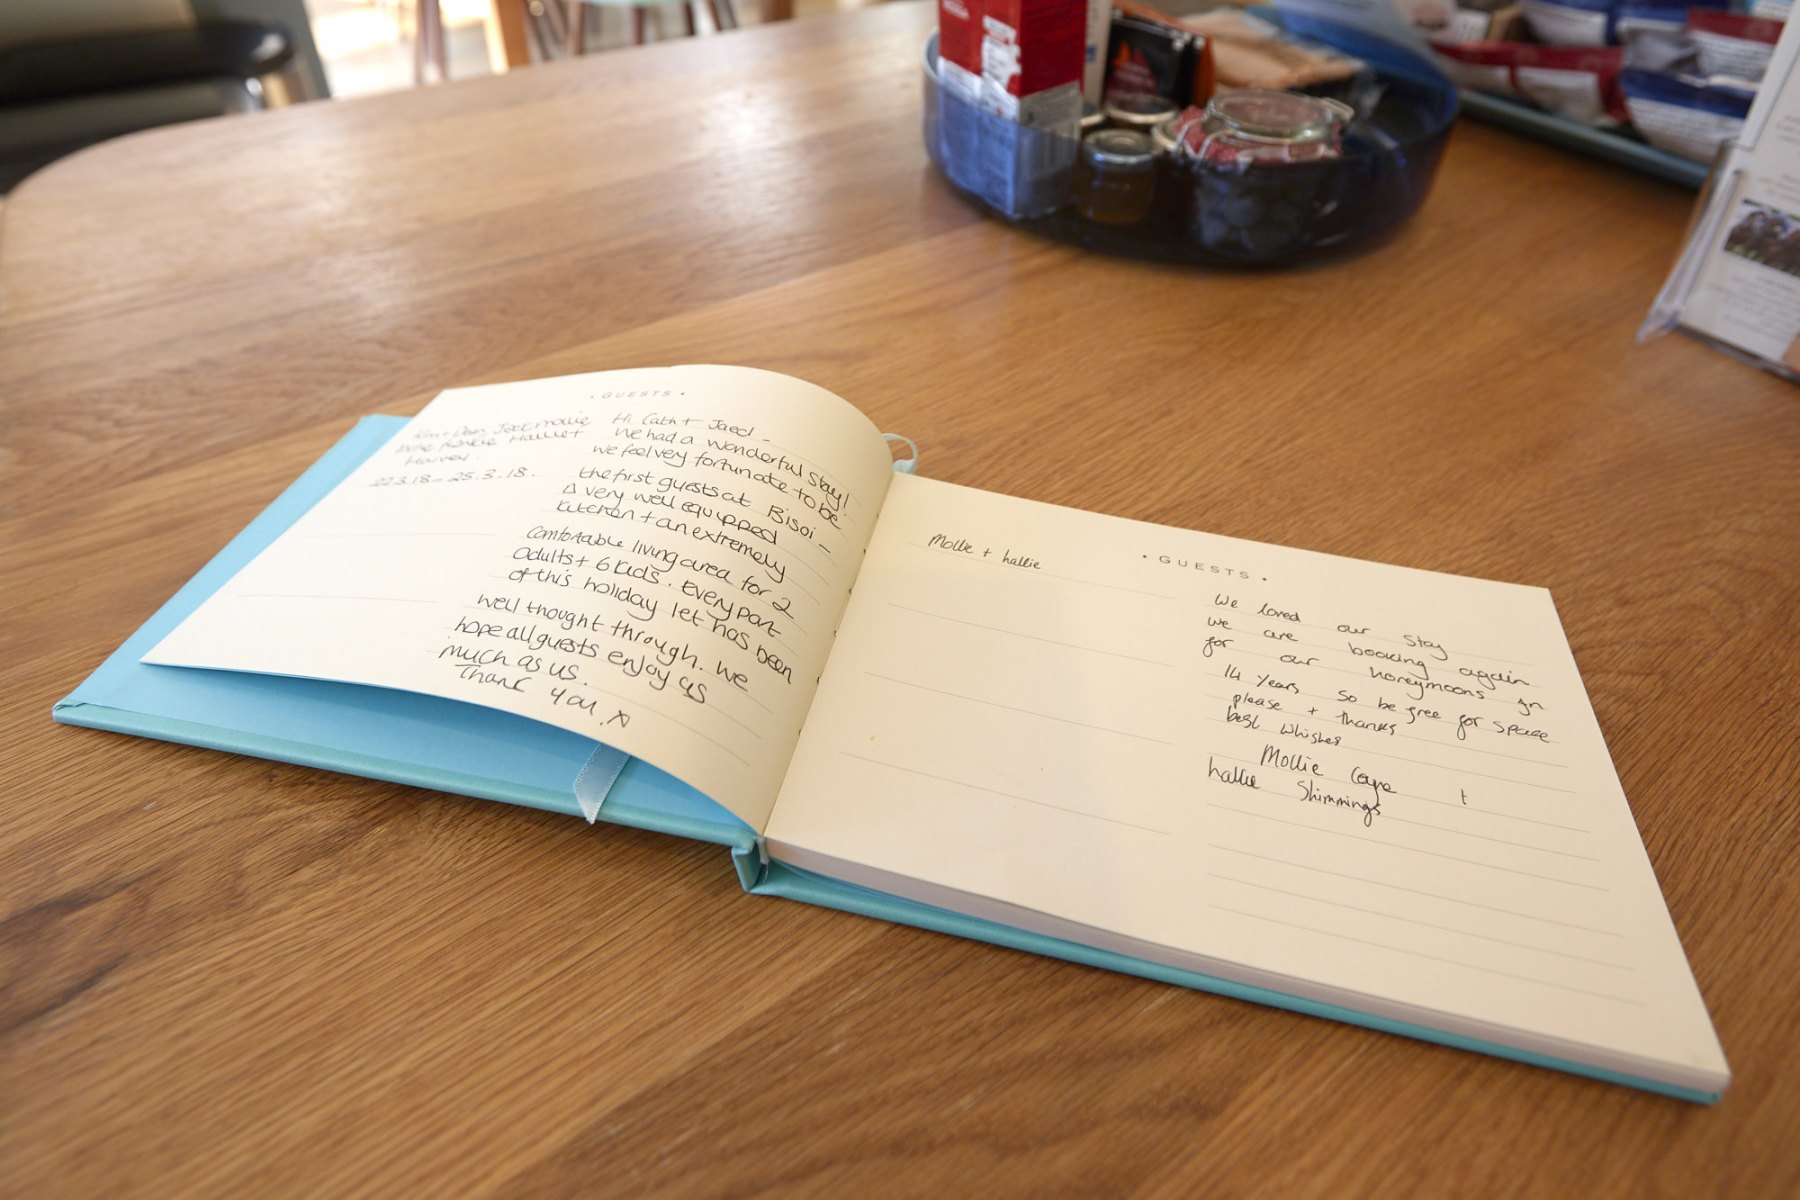 · GUESTS ·
Kim + Dean Jack mollie
Hallie +
Harvey.
22.3.18 - 25.3.18.
Hi Cath + Jaed -
We had a wonderful stay!
we feel very fortunate to be
the first guests at Bisoi -
A very well equipped
kitchen + an extremely
comfortable living area for 2
adults + 6 kids. Every part
of this holiday let has been
well thought through. We
hope all guests enjoy as
much as us.
Thank you. X
· GUESTS ·
Mollie + hallie
We loved our stay
we are booking again
for our honeymoons in
14 years so be free for space
please + thanks
best whishes
Mollie +
hallie Shimmings